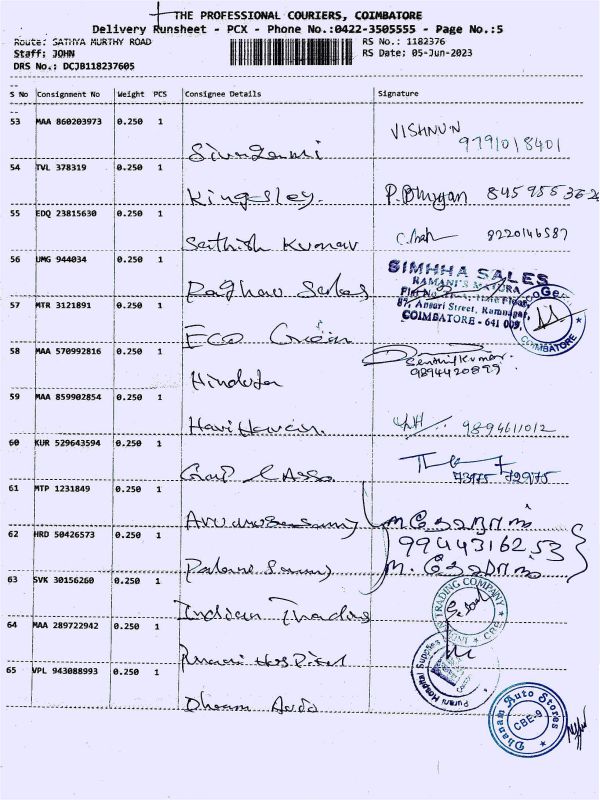 THE PROFESSIONAL COURIERS, COIMBATORE
Delivery Runsheet - PCX - Phone No.:0422-3505555 - Page No.:5
Route: SATHYA MURTHY ROAD RS No.: 1182376
Staff: JOHN RS Date: 05-Jun-2023
DRS No.: DCJB118237605
S No Consignment No Weight PCS Consignee Details Signature
53 MAA 860203973 0.250 1 VISHNU N
9791018401
54 TVL 378319 0.250 1
Kingesley. P. 
55 EDQ 23815630 0.250 1
Sathish Kumar 8220146587
56 UMG 944034 0.250 1 SIMHHA SALES
RAMANI'S MAYURA
Raghav Sales
57 MTR 3121891 0.250 1 87, Ansari Street, Ramnagar,
COIMBATORE - 641 009.
COIMBATORE
Eco Green
58 MAA 570992816 0.250 1 Senthil Kumar.
9894420899
Hindusta
59 MAA 859902854 0.250 1
Hariharan. 9894611012
60 KUR 529643594 0.250 1
73975 72975
61 MTP 1231849 0.250 1
62 HRD 50426573 0.250 1 9944316253
63 SVK 30156260 0.250 1
Indian Trading TRADING COMPANY
64 MAA 289722942 0.250 1
Purani Hospital Purani Hospital Supplies
65 VPL 943088993 0.250 1
Dhanam Auto Dhanam Auto Stores
CBE-9